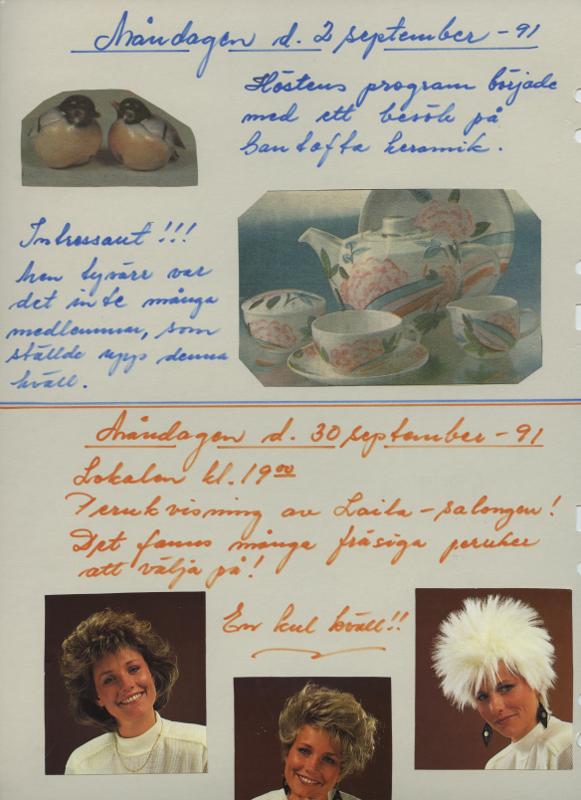 Måndagen d. 2 september - 91
Höstens program började
med ett besök på
Gantofta keramik.
Intressant!!!
Men tyvärr var
det inte många
medlemmar, som
ställde upp denna
kväll.
Måndagen d. 30 september - 91
Lokalen kl. 19⁰⁰
Perukvisning av Laila-salongen!
Det fanns många fräsiga peruker
att välja på!
En kul kväll!!